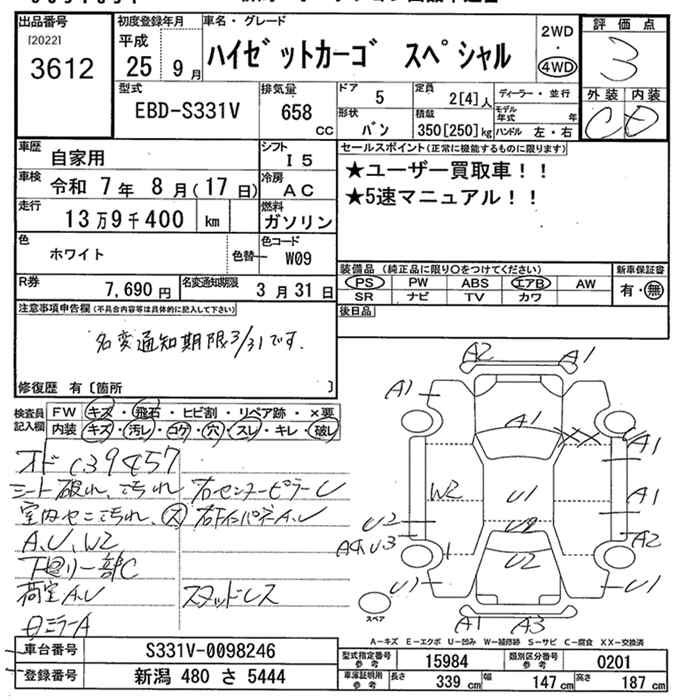 出品番号 初度登録年月 車名・グレード 2WD 評価点
[2022] 平成 ハイゼットカーゴ スペシャル ・ 3
3612 25年 9月 4WD 外装 内装
型式 排気量 ドア 5 定員 2[4]人 ディーラー・並行 C D
EBD-S331V 658cc 形状 バン 積載 350[250]kg モデル年式 年 ハンドル 左・右
車歴 自家用 シフト I5 セールスポイント(正常に機能するものに限ります)
車検 令和 7年 8月(17日) 冷房 AC ★ユーザー買取車!!
走行 13万9千400 km 燃料 ガソリン ★5速マニュアル!!
色 ホワイト 色替 色コード W09
装備品(純正品に限り○をつけてください) 新車保証書
R券 7,690円 名変通知期限 3月31日 PS PW ABS エアB AW 有・無
SR ナビ TV カワ
注意事項申告欄(不具合内容等は具体的に記入して下さい) 後日品
名変通知期限3/31です.
修復歴 有〔箇所 〕
検査員記入欄 FW キズ・飛石・ヒビ割・リペア跡・×要
内装 キズ・汚レ・コゲ・穴・スレ・キレ・破レ
シート破れ、汚れ 右センターピラーU
A、U、W2
下回り一部C
荷室A、U スタッドレス
A2 A1
A1 A1 XX A1
W2 U1 A1
U2 U2 A2
A4、U3 U2
U1 U1
スペア A1 A3
A-キズ E-エクボ U-凹み W-補修跡 S-サビ C-腐食 XX-交換済
車台番号 S331V-0098246 型式指定番号参考 15984 類別区分番号参考 0201
登録番号 新潟 480 さ 5444 車庫証明用参考 長さ 339cm 幅 147cm 高さ 187cm